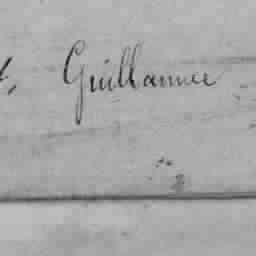 t, Guillaumee